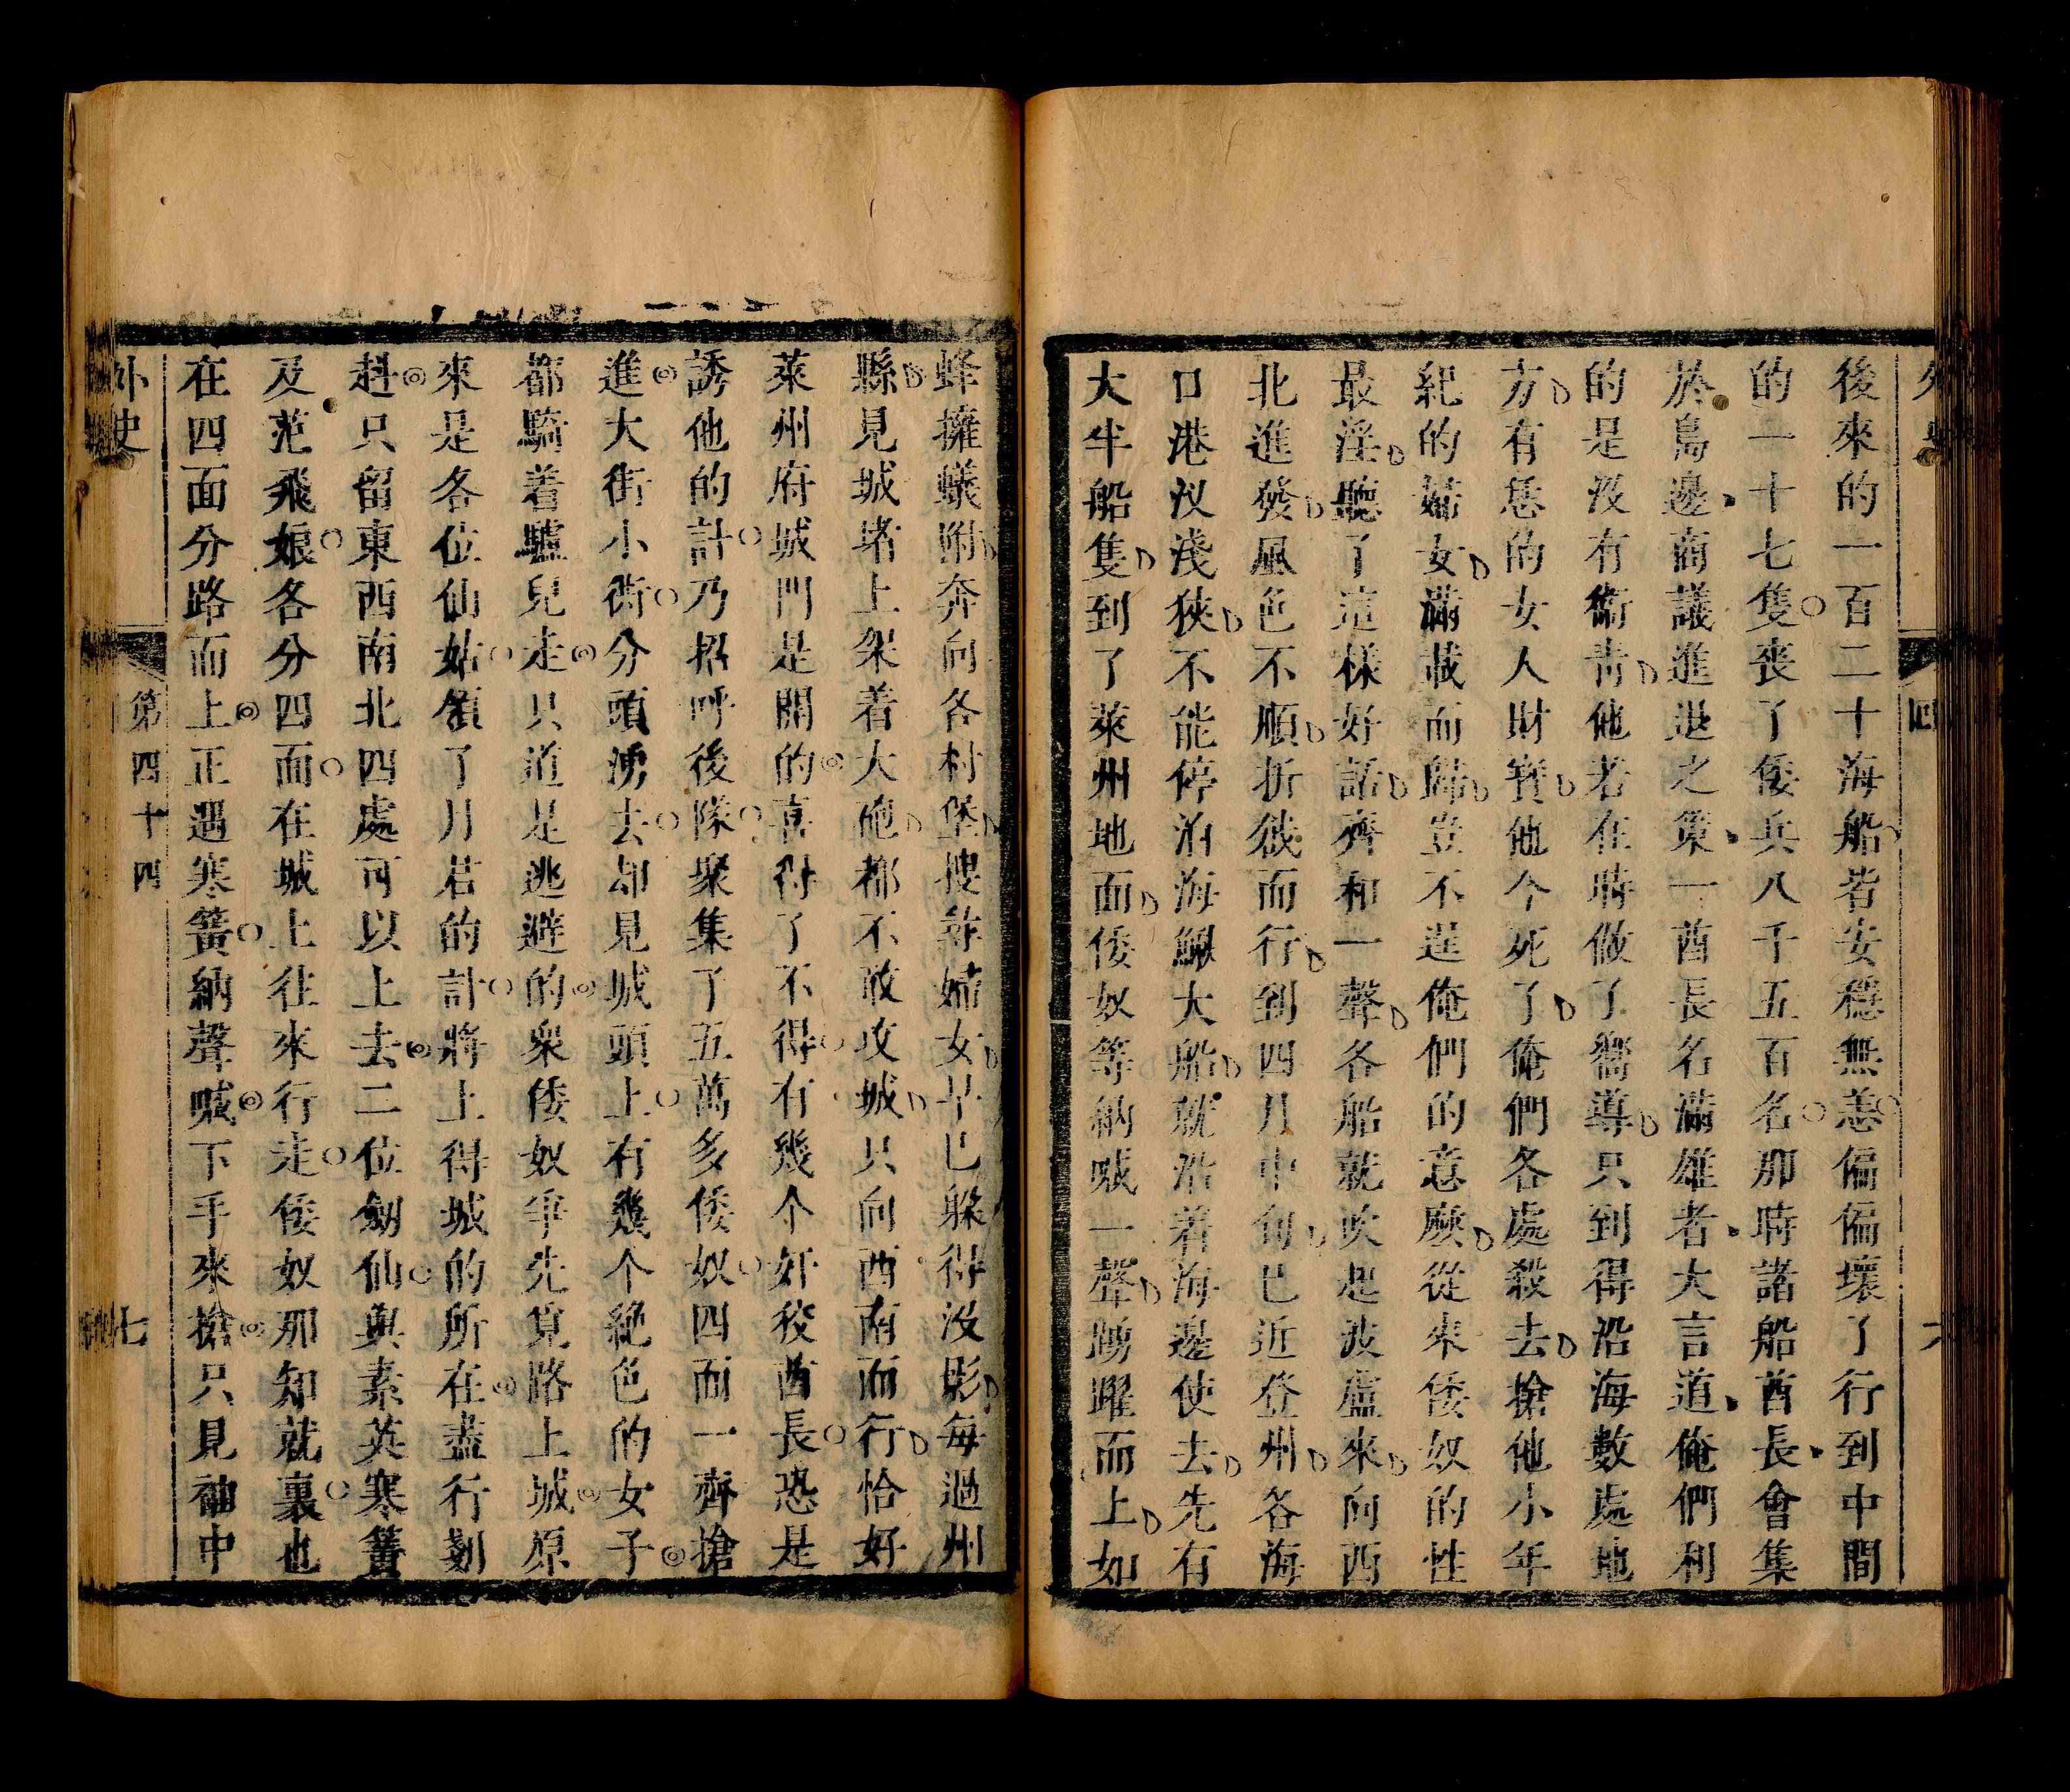 後來的一百二十海船皆安穩無恙偏偏壞了行到中間
的一十七隻喪了倭兵八千五百名那時諸船酋長會集
於島邊商議進退之策一酋長名滿雄者大言道俺們利
的是沒有衛青他若在時做了嚮導只到得沿海數處地
方有恁的女人財寶他今死了俺們各處殺去搶他小年
紀的婦女滿載而歸豈不逞俺們的意麽從來倭奴的性
最淫聽了這樣好話齊和一聲各船就吹起波盧來向西
北進發風色不順折戧而行到四月中旬已近登州各海
口港汊淺狹不能停泊海鰍大船就沿着海邊使去先有
大半船隻到了萊州地面倭奴等納喊一聲踴躍而上如
蜂擁蟻附奔向各村堡搜尋婦女早已躲得沒影每過州
縣見城堵上架着大砲都不敢攻城只向西南而行恰好
萊州府城門是開的喜得了不得有幾个奸狡酋長恐是
誘他的計乃招呼後隊聚集了五萬多倭奴四面一齊搶
進大街小街分頭湧去却見城頭上有幾个絶色的女子
都騎着驢兒走只道是逃避的衆倭奴爭先覓路上城原
來是各位仙姑領了月君的計將上得城的所在盡行剗
斜只留東西南北四處可以上去二位劔仙與素英寒簧
及范飛娘各分四面在城上往來行走倭奴那知就裏也
在四面分路而上正遇寒簧納聲喊下手來搶只見袖中
外史
第四十四
七